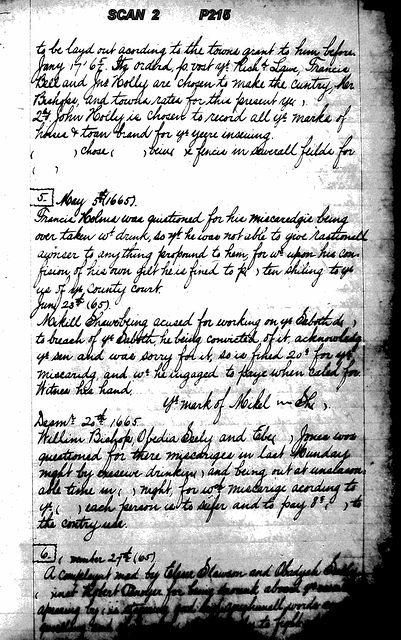 SCAN 2 P215
to be layd out acording to the towns grant to him before
Jany 17 67. Ordered, voat yt Rich d Law, Francis
Bell and Jno Holly are chosen to make the cuntry, Mr
Bishops, and towns rates for this present yer,
2ly John Holly is chosen to record all ye marks of
horse & town brand for ye yere insewing.
( , chose ( , fences in severall feilds for
( ,
5. May 5th (1665).
Francis Holms was questioned for his miscaredgis being
over taken wt drink, so yt he was not able to give rastionall
answer to anything propound to hem, for wt upon his con-
fision of his own gilt he is fined to p ten shiling to ye
us of ye county court.
Jun, 23d (65).
Mikill Shew being acused for working on ye Saboth da ,
to breach of ye Saboth, he being convicted, of it, acknowledg
ye sin and was sorry for it, so is fined 20s for yt
miscaridg and wt he ingaged to paye when caled for
Witnes his hand,
ye mark of Mikel m Sh ,.
Desmr 20th 1665
Willim Bishop, Obedia Seely and Ebe( , Jones was
questioned for there miscariges in last Munday
night by exsesive drinking, and being out at unseason-
able time in ( , night, for wch miscarige acording to
ye ( , each person is to sufer and to pay 8s, ( , to
the contry use.
6. ( mber 27th (65)
A complaynt mad by Eliezr Slawson and Obadyah Seely
( inst Robert for being drounk about
apearing by and words
to fight